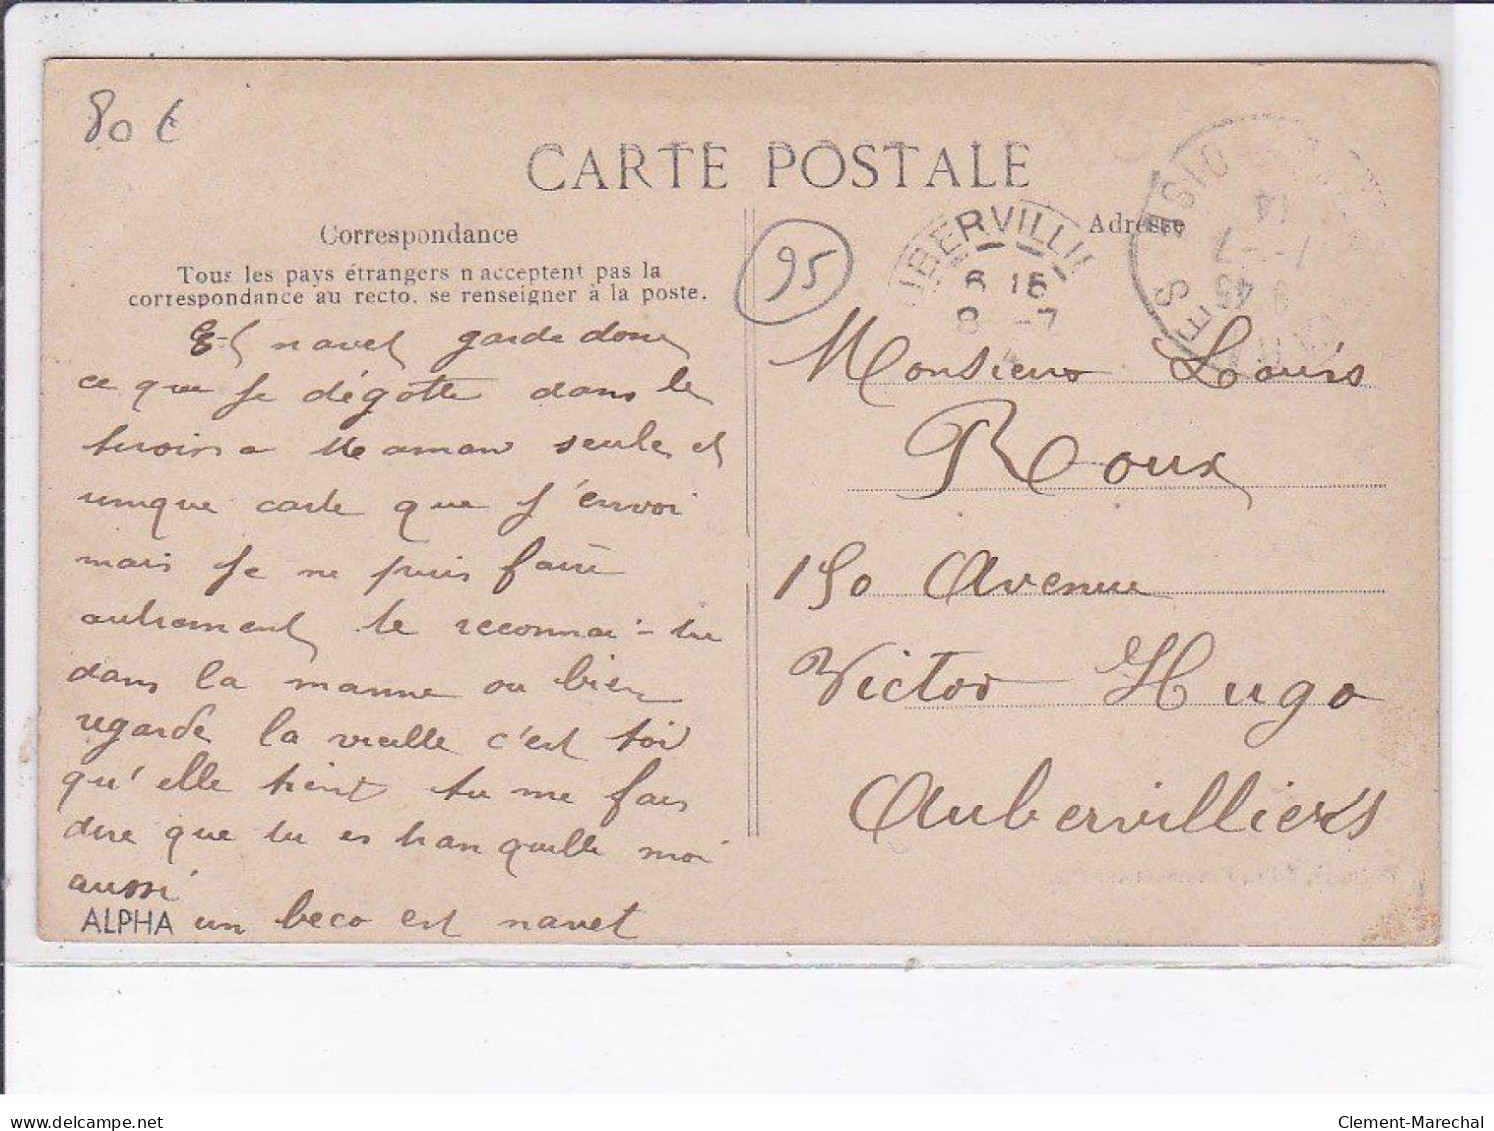 80 €
CARTE POSTALE
Correspondance
Tous les pays étrangers n'acceptent pas la
correspondance au recto, se renseigner à la poste.
95
UBERVILLI
6 15
8 -7
Adresse
OISE
14
7 - 7
9 45
navet garde donc
ce que je dégotte dans le
tiroir a Maman seule et
unique carte que j'envoi
mais je ne puis faire
autrement te reconnai-tu
dans la manne ou bien
regarde la vielle c'est toi
qu'elle tient tu me fais
dire que tu es tranquille moi
aussi
ALPHA un beco est navet
Monsieur Louis
Roux
150 Avenue
Victor Hugo
Aubervilliers
Clement-Marechal
delcampe.net